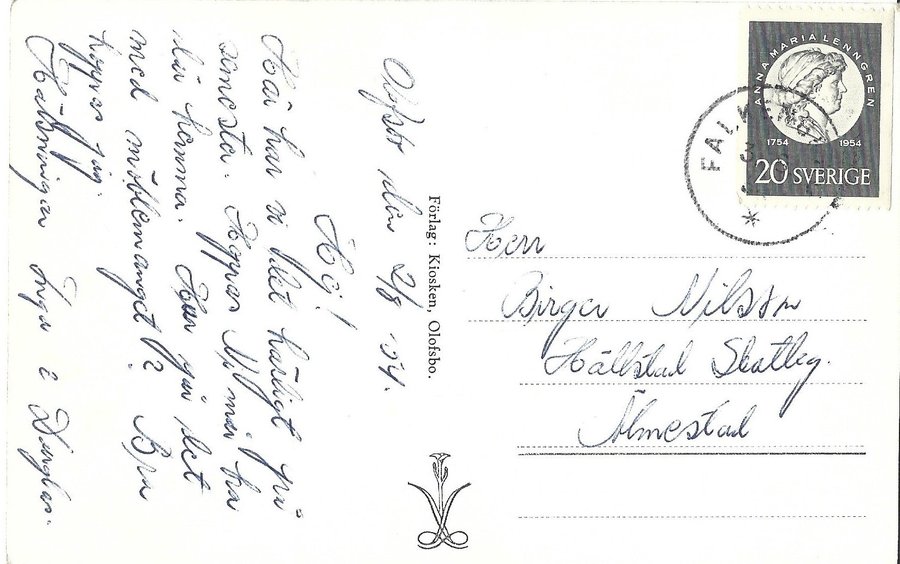 Olofsbo den 2/8 -54.
Hej!
Här har vi det härligt på
semester. Hoppas Ni mår bra
där hemma. Hur går det
med möblemanget? Bra
hoppas jag.
Hälsningar Inga & Douglas.
Förlag: Kiosken, Olofsbo.
ANNA MARIA LENNGREN
1754 1954
20 SVERIGE
FALK
Herr
Birger Nilsson
Hällstad Skattleg.
Älmestad